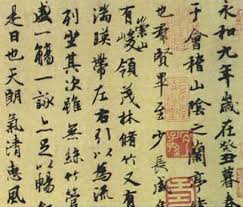 永和九年歲在癸丑暮春
于會稽山陰之蘭亭脩
也羣賢畢至少長咸
崇山
有峻領茂林脩竹又有
湍暎帶左右引以為流
列坐其次雖無絲竹管
盛一觴一詠亦足以暢叙
是日也天朗氣清惠風